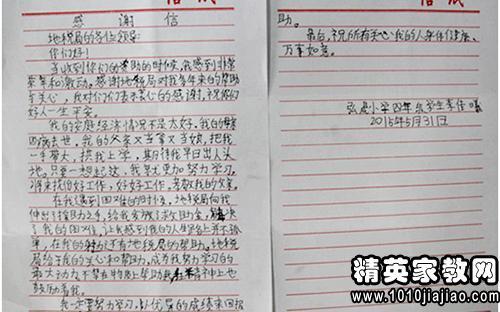 感谢信
地税局的各位领导:
你们好!
当收到你们的帮助的时候,我感到非常
荣幸和激动。感谢地税局对我多年来的帮助
和关心,我对你们表示衷心的感谢,祝愿你们
好人一生平安。
我的家庭经济情况不是太好。我的母亲
因病去世,我的父亲又当爹又当娘,把我
一手带大,供我上学,期待我早日出人头
地。只要一想起这,我就更加努力学习。
将来找份好工作,好好工作,孝敬我的父亲。
在我遇到困难的时候,地税局向我
伸出了援助之手,给我发放了救助金,解决
了我的困难,让我感到我的人生路上并不孤
单,在我的身边还有地税局的帮助。地税
局给予我的关心和帮助,成为我努力学习的
最大动力,不禁在物质上帮助我在精神上也
鼓励着我。
我一定要努力学习,以优异的成绩来回报
助。
最后,祝所有关心我的人身体健康、
万事如意。
小学四年
2015年5月31日
精英家教网
www.1010jiajiao.com